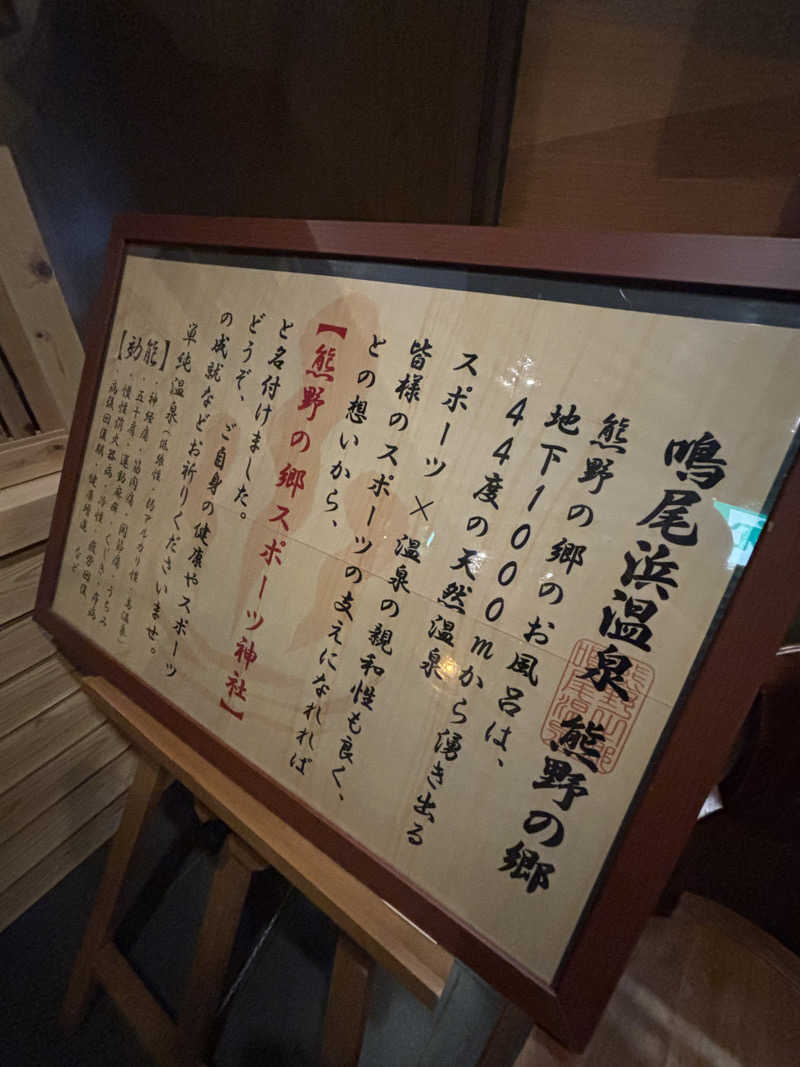 鳴尾浜温泉 熊野の郷
熊野の郷のお風呂は、
地下1000mから湧き出る
44度の天然温泉
スポーツ×温泉の親和性も良く、
皆様のスポーツの支えになれれば
との想いから、
【熊野の郷スポーツ神社】
と名付けました。
どうぞ、ご自身の健康やスポーツ
の成就などお祈りくださいませ。
単純温泉(低張性・弱アルカリ性・高温泉)
【効能】・神経痛・筋肉痛・関節痛・うちみ
・五十肩・運動麻痺・くじき・痔病
・慢性消化器病・冷え性・疲労回復
・病後回復期・健康増進 など